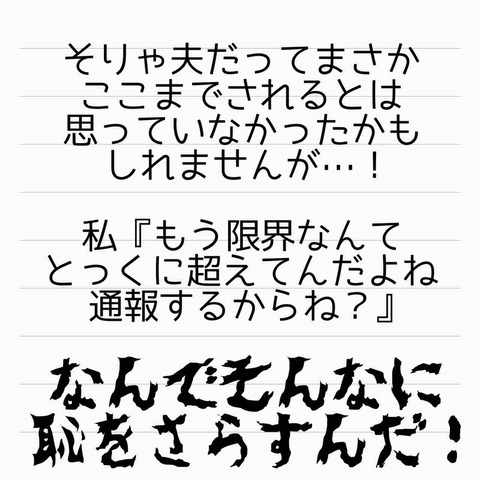 そりゃ夫だってまさか
ここまでされるとは
思っていなかったかも
しれませんが…！
私『もう限界なんて
とっくに超えてんだよね
通報するからね？』
なんでそんなに
恥をさらすんだ！